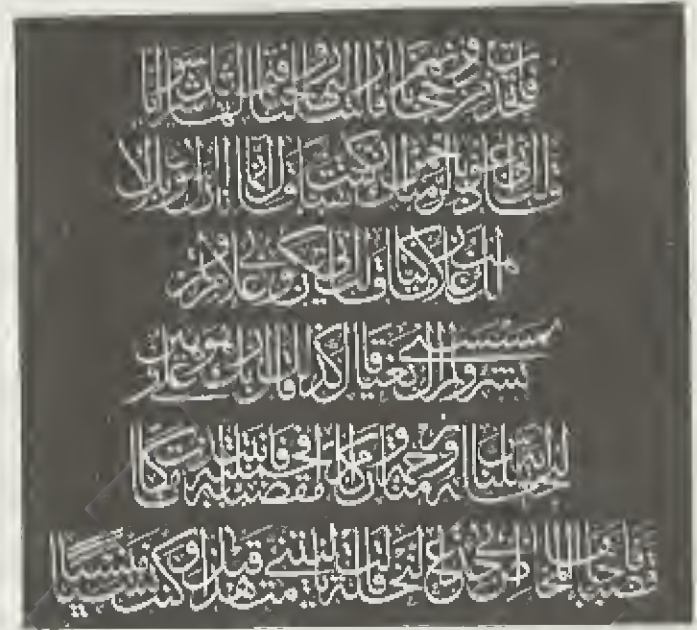 فاتخذت من دونهم حجابا فأرسلنا إليها روحنا فتمثل لها بشرا سويا
قالت إني أعوذ بالرحمن منك إن كنت تقيا قال إنما أنا رسول ربك لأ
هب لك غلاما زكيا قالت أنى يكون لي غلام ولم
يمسسني بشر ولم أك بغيا قال كذلك قال ربك هو علي هين و
لنجعله آية للناس ورحمة منا وكان أمرا مقضيا فحملته فانتبذت به مكانا
قصيا فأجاءها المخاض إلى جذع النخلة قالت يليتني مت قبل هذا وكنت نسيا منسيا